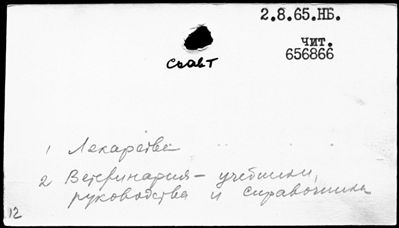 2.8.65.НБ.
чит.
656866
соавт
1 Лекарства
2 Ветеринария – учебники,
руководства и справочники
12